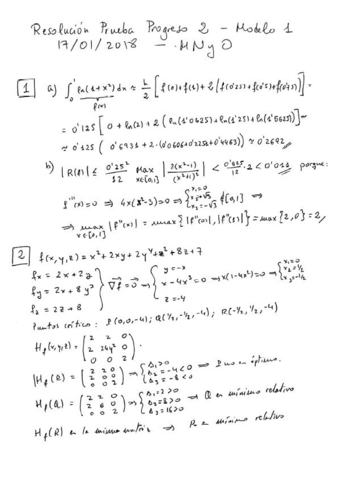 Resolución Prueba Progreso 2 - Modelo 1
17/01/2018 - MN y O
1 a) ∫₀¹ ln(1+x²) dx ≈ h/2 [f(0)+f(1)+2(f(0'25)+f(0'5)+f(0'75))] =
f(x)
= 0'125 [0 + ln(2) + 2(ln(1'0625)+ln(1'25)+ln(1'5625))] =
≈ 0'125 (0'6931 + 2·(0'0606+0'2231+0'4463)) ≈ 0'2692
b) |R(f)| ≤ 0'25²/12 Max x∈[0,1] |2(x²-1)/(x²+1)²| < 0'0625/12 · 2 < 0'011 porque:
f'''(x)=0 ⇒ 4x(x²-3)=0 ⇒ { x₁=0 x₂=√3 x₃=-√3 ∉ [0,1] ⇒
⇒ max x∈[0,1] |f''(x)| = max{|f''(0)|, |f''(1)|} = max{2,0} = 2
2 f(x,y,z) = x²+2xy+2y⁴+z²+8z+7
fx = 2x+2y
fy = 2x+8y³
fz = 2z+8
} ∇f = 0 ⇒ { y=-x x-4x³=0 z=-4 ⇒ x(1-4x²)=0 ⇒ { x₁=0 x₂=1/2 x₃=-1/2
Puntos críticos: P(0,0,-4); Q(1/2,-1/2,-4); R(-1/2,1/2,-4)
Hf(x,y,z) = (2 2 0 / 2 24y² 0 / 0 0 2)
|Hf(P)| = (2 2 0 / 2 0 0 / 0 0 2) ⇒ { Δ₁>0 Δ₂=-4<0 Δ₃=-8<0 ⇒ P no es óptimo.
Hf(Q) = (2 2 0 / 2 6 0 / 0 0 2) ⇒ { Δ₁=2>0 Δ₂=8>0 Δ₃=16>0 ⇒ Q es mínimo relativo
Hf(R) es la misma matriz ⇒ R es mínimo relativo